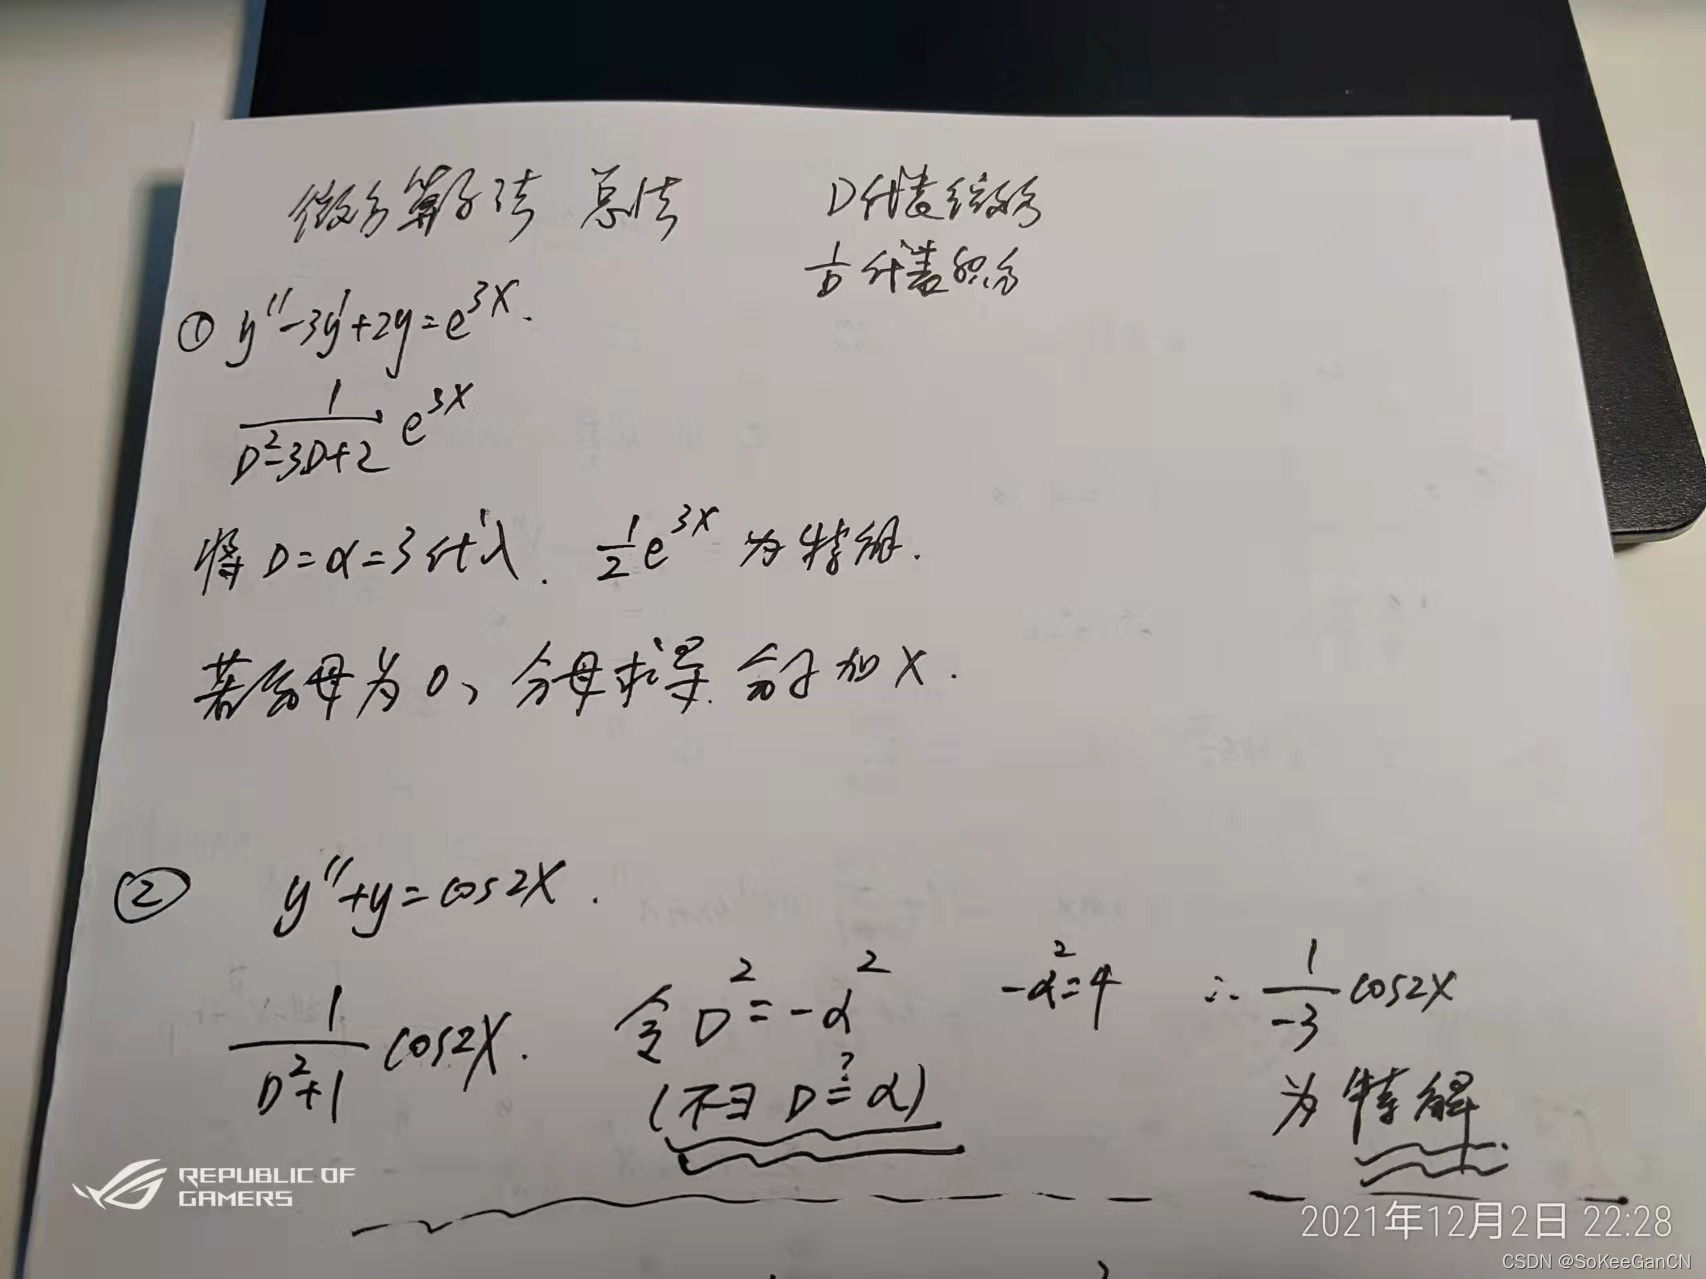 微分算子法 总结
D代表微分
1/D 代表积分
① y''-3y'+2y=e^{3x}.
1/(D²-3D+2) e^{3x}
将 D=α=3代入. 1/2 e^{3x} 为特解.
若分母为0, 分母求导 分子加x.
② y''+y=cos2x.
1/(D²+1) cos2x. 令 D²=-α² -α²=4 ∴ 1/-3 cos2x
(不可 D=α) 为特解
REPUBLIC OF
GAMERS
2021年12月2日 22:28
CSDN @SoKeeGanCN